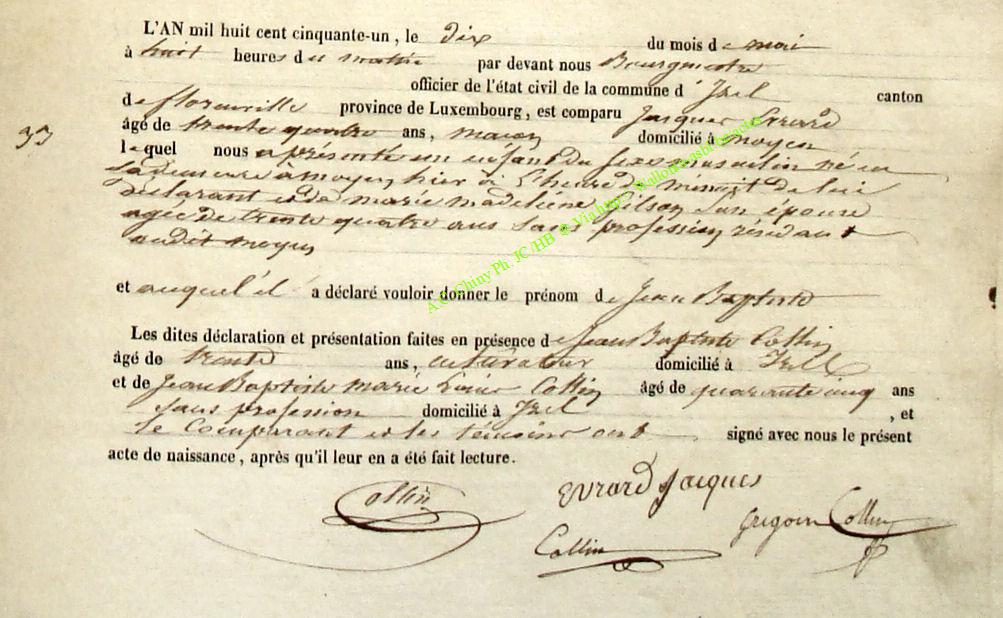 L'AN mil huit cent cinquante-un, le dix du mois de mai
à huit heures du matin par devant nous Bourgmestre
officier de l'état civil de la commune d' Izel canton
de florenville province de Luxembourg, est comparu Jacques Evrard
33 âgé de trente quatre ans, maçon domicilié à moyen
lequel nous a présenté un enfant du sexe masculin né en
sa demeure à moyen, hier à l'heure de minuit de lui
déclarant et de marie madeleine Gilson son épouse
agée de trente quatre ans sans profession résidant
audit moyen
et auquel il a déclaré vouloir donner le prénom de Jean Baptiste
Les dites déclaration et présentation faites en présence de Jean Baptiste Collin
âgé de trente ans, cultivateur domicilié à Izel
et de Jean Baptiste marie Collin âgé de quarante cinq ans
sans profession domicilié à Izel , et
le Comparant et les témoins ont signé avec nous le présent
acte de naissance, après qu'il leur en a été fait lecture.
Collin
Evrard Jacques
Collin
gregoire Collin
A.C. Chiny Ph. JC/HB ©